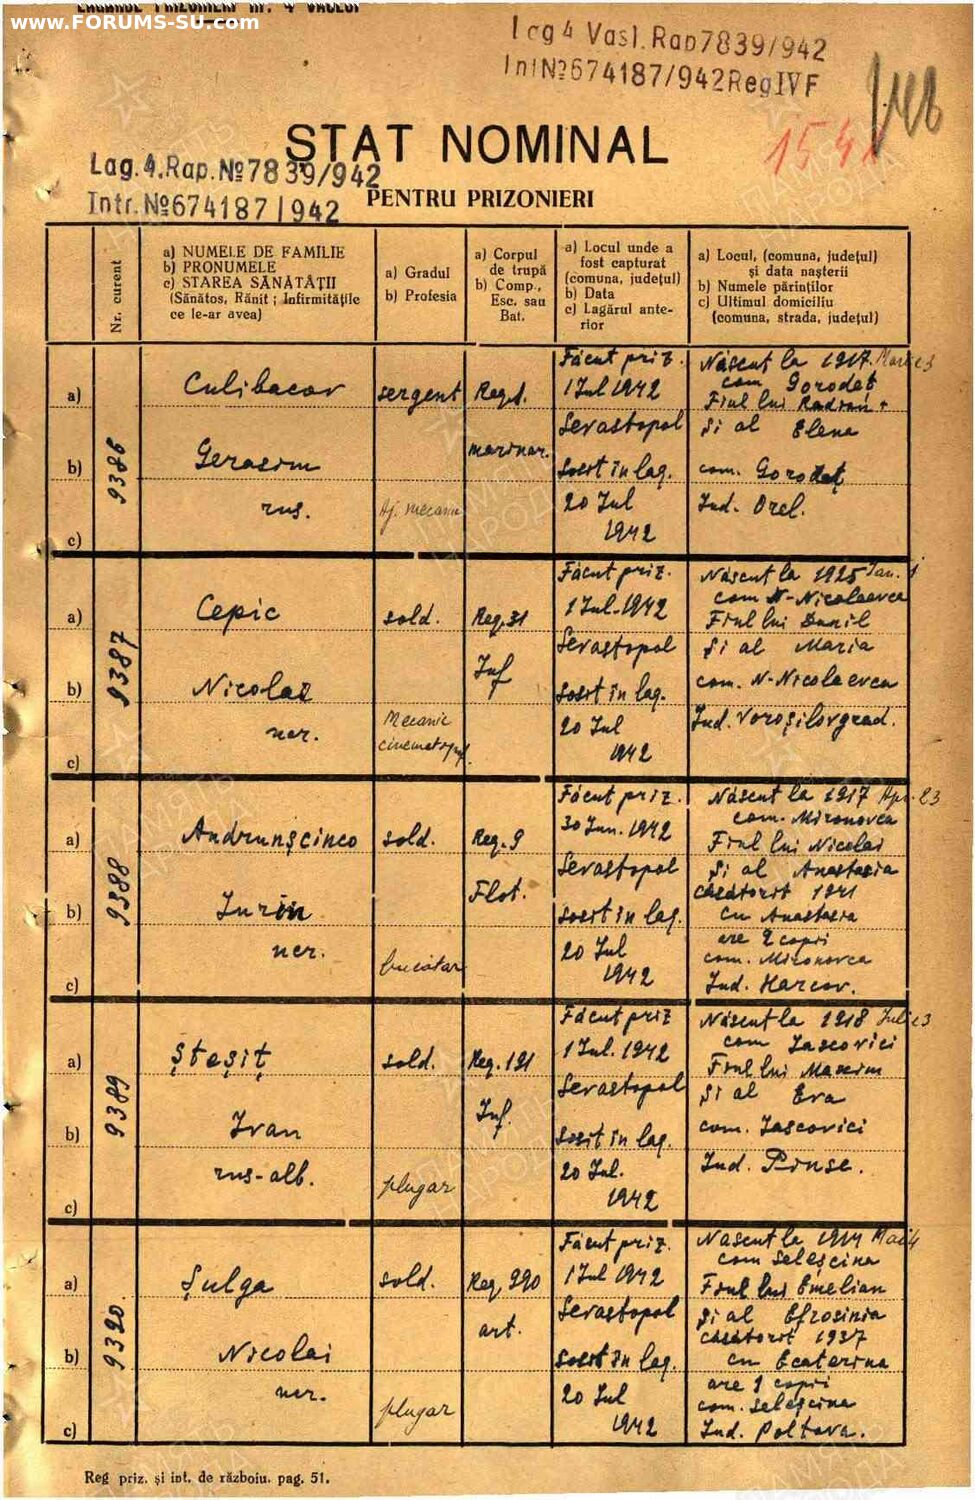 LAGĂRUL PRIZONIERI Nr. 4 VASLUI
www.FORUMS-SU.com
Lag 4 Vasl. Rap 7839/942
Int №674187/942 Reg IV F
154
STAT NOMINAL
Lag. 4. Rap. № 7839/942
Intr. №674187/942
PENTRU PRIZONIERI
Nr. curent
a) NUMELE DE FAMILIE
b) PRONUMELE
c) STAREA SĂNĂTĂȚII
(Sănătos, Rănit; Infirmitățile
ce le-ar avea)
a) Gradul
b) Profesia
a) Corpul
de trupă
b) Comp.,
Esc. sau
Bat.
a) Locul unde a
fost capturat
(comuna, județul)
b) Data
c) Lagărul ante-
rior
a) Locul, (comuna, județul)
și data nașterii
b) Numele părinților
c) Ultimul domiciliu
(comuna, strada, județul)
a)
b)
c)
9386
Culibacov
Gerasim
rus.
sergent
Aj. mecanic
Reg. 1.
marinar.
Făcut priz.
1 Jul 1942
Sevastopol
Sosit în lag.
20 Jul
1942
Născut la 1917. Marte 3
com Gorodeț
Fiul lui Radion +
și al Elena
com. Gorodeț
Jud. Orel.
a)
b)
c)
9387
Cepic
Nicolai
ucr.
sold.
Mecanic
cinematograf.
Reg. 31
Inf
Făcut priz.
1 Jul. 1942
Sevastopol
Sosit în lag.
20 Jul
1942
Născut la 1925 Ian. 1
com N-Nicolaevca
Fiul lui Danil
și al Maria
com. N-Nicolaevca
Jud. Voroșilovgrad.
a)
b)
c)
9388
Andrunșcinco
Iurin
ucr.
sold.
bucătar
Reg. 9
Flot.
Făcut priz.
30 Jun. 1942
Sevastopol
Sosit în lag.
20 Jul
1942
Născut la 1917 Apr. 23
com. Mironovca
Fiul lui Nicolai
și al Anastasia
căsătorit 1941
cu Anastasia
are 2 copri
com. Mironovca
Jud. Harcov.
a)
b)
c)
9389
Șteșiț
Ivan
rus-alb.
sold.
plugar
Reg. 191
Inf.
Făcut priz
1 Jul. 1942
Sevastopol
Sosit în lag.
20 Jul.
1942
Născut la 1918 Julie 3
com Iascovici
Fiul lui Maxim
și al Eva
com. Iascovici
Jud. Pinsc.
a)
b)
c)
9390
Șulga
Nicolai
ucr.
sold.
plugar
Reg. 990
art.
Făcut priz.
1 Jul 1942
Sevastopol
Sosit în lag.
20 Jul
1942
Născut la 1914 Mai 4
com Seleșcina
Fiul lui Emelian
și al Efrosinia
căsătorit 1937
cu Ecaterina
are 1 copri
com. Seleșcina
Jud. Poltava.
Reg priz. și int. de războiu. pag. 51.